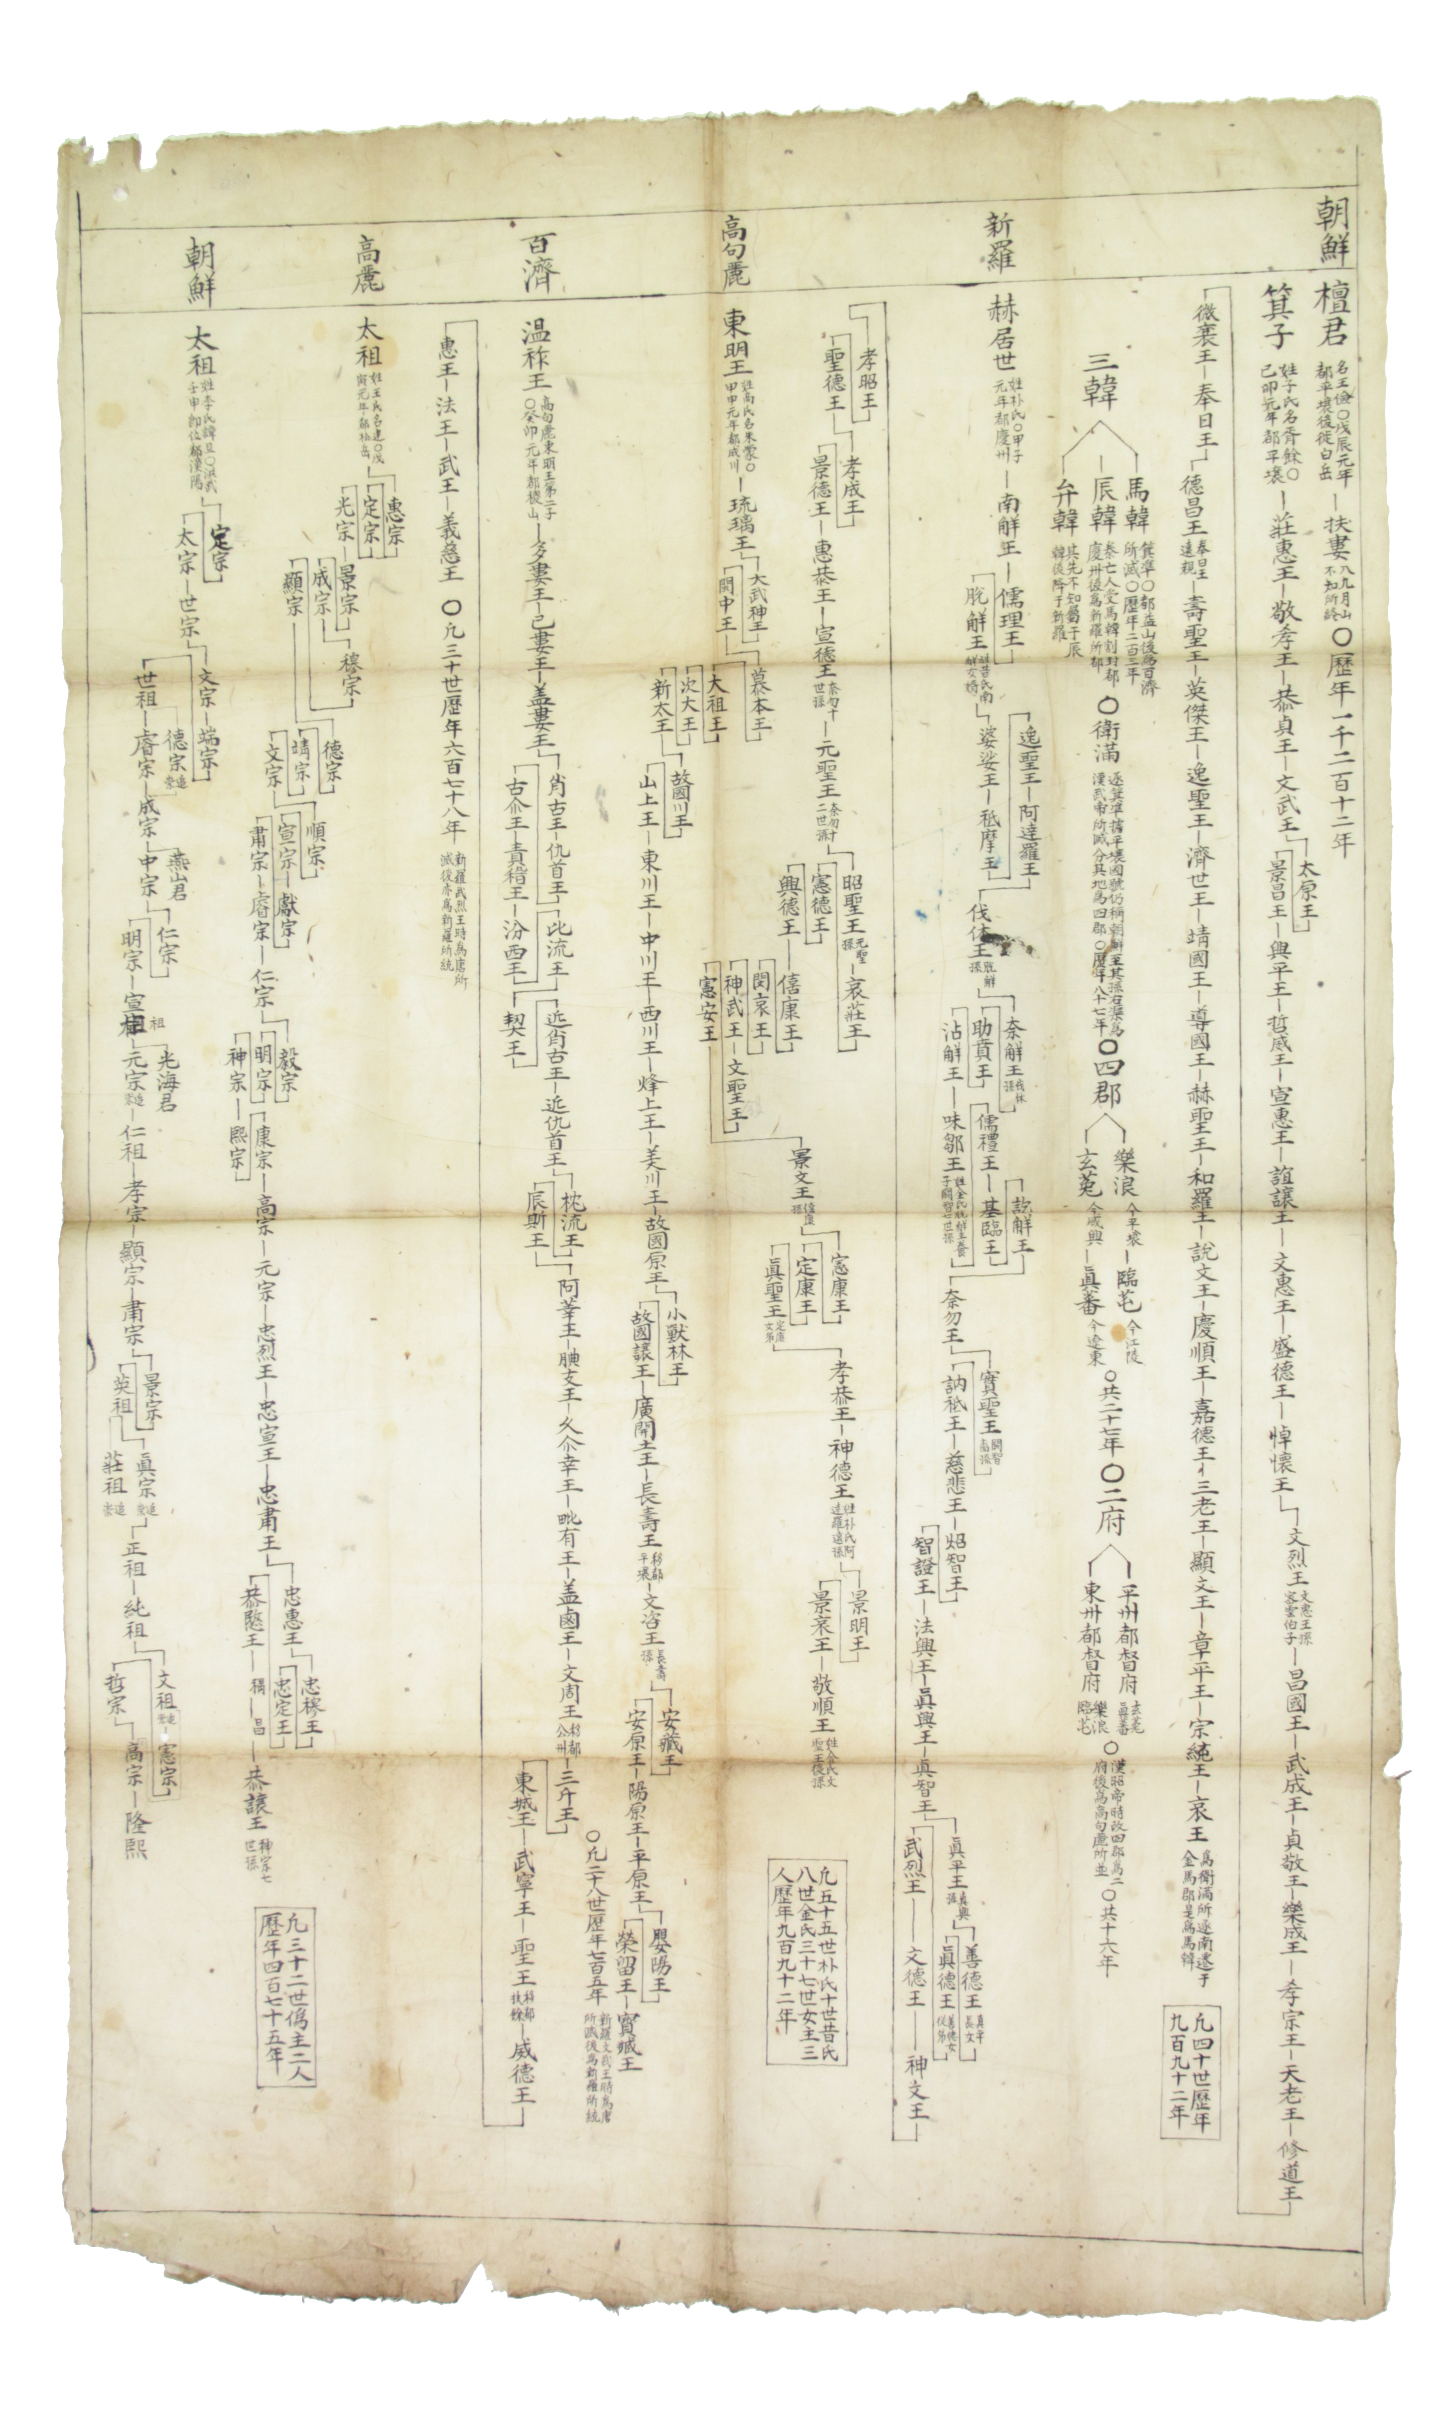 朝鮮
檀君 名王儉○戊辰元年都平壤後徙白岳 扶婁 八九月山不知所終 ○歷年一千二百十二年
箕子 姓子氏名胥餘○己卯元年都平壤 莊惠王 敬孝王 恭貞王 文武王 太原王
景昌王 興平王 哲威王 宣惠王 誼讓王 文惠王 盛德王 悼懷王 文烈王 文惠王孫 昌國王 武成王 貞敬王 樂成王 孝宗王 天老王 修道王
微襄王 奉日王 德昌王 奉日王遠親 壽聖王 英傑王 逸聖王 濟世王 靖國王 導國王 赫聖王 和羅王 說文王 慶順王 嘉德王 三老王 顯文王 章平王 宗純王 哀王 爲衛滿所逐南遷于金馬郡是爲馬韓
凡四十世歷年九百九十二年
三韓
馬韓 箕準○都益山後爲百濟所滅○歷年二百三年
辰韓 秦亡人受馬韓割封都慶州後爲新羅所都
弁韓 其先不知屬于辰韓後降于新羅
○衛滿 逐箕準據平壤國號仍稱朝鮮至其孫右渠爲漢武帝所滅分其地爲四郡○歷年八十七年
○四郡
樂浪 今平壤 臨芚 今江陵
玄菟 今咸興 眞蕃 今遼東
○共二十七年
○二府
平州都督府 玄菟眞蕃
東州都督府 樂浪臨芚
○漢昭帝時改四郡爲二府後爲高句麗所並○共十六年
新羅
赫居世 姓朴氏○甲子元年都慶州 南解王 儒理王
脫解王 姓昔氏南解女婿
逸聖王 阿達羅王
婆娑王 祗摩王
伐休王 脫解孫
奈解王 伐休孫
助賁王
沾解王
訖解王
儒禮王 基臨王
味鄒王
奈勿王 實聖王 閼智裔孫
訥祗王 慈悲王 炤智王
智證王 法興王 眞興王 眞智王 眞平王 眞興孫
善德王 眞平長女
眞德王 善德女從弟
武烈王 文德王 神文王
孝昭王
聖德王 孝成王
景德王 惠恭王 宣德王 奈勿十世孫 元聖王 奈勿十二世孫
昭聖王 元聖孫 哀莊王
憲德王
興德王 僖康王
閔哀王
神武王 文聖王
憲安王
景文王 僖康孫
憲康王
定康王
眞聖王 定康女弟
孝恭王 神德王 姓朴氏阿達羅遠孫
景明王
景哀王 敬順王 姓金氏文聖王後孫
凡五十五世朴氏十世昔氏八世金氏三十七世女主三人歷年九百九十二年
高句麗
東明王 姓高氏名朱蒙○甲申元年都成川 琉璃王
大武神王
閔中王
慕本王
大祖王
次大王
新太王
故國川王
山上王 東川王 中川王 西川王 烽上王 美川王 故國原王
小獸林王
故國讓王 廣開土王 長壽王 移都平壤 文咨王 長壽孫
安臧王
安原王 陽原王 平原王
嬰陽王
榮留王 寶臧王
○凡二十八世歷年七百五年 新羅文武王時爲唐所滅後爲新羅所統
百濟
温祚王 高句麗東明王第二子○癸卯元年都稷山 多婁王 己婁王 盖婁王
肖古王 仇首王
古尒王 責稽王 汾西王
比流王
契王
近肖古王 近仇首王
枕流王
辰斯王
阿莘王 腆支王 久尒辛王 毗有王 盖鹵王 文周王 移都公州 三斤王
東城王 武寧王 聖王 移都扶餘 威德王
惠王 法王 武王 義慈王 ○凡三十世歷年六百七十八年 新羅武烈王時爲唐所滅後亦爲新羅所統
高麗
太祖 姓王氏名建○戊寅元年都松岳
惠宗
定宗
光宗 景宗
成宗
穆宗
顯宗
德宗
靖宗
文宗
順宗
宣宗 獻宗
肅宗 睿宗 仁宗
毅宗
明宗
神宗 康宗
熙宗
高宗 元宗 忠烈王 忠宣王 忠肅王
忠惠王
忠穆王
忠定王
恭愍王 禑 昌 恭讓王 神宗七世孫
凡三十二世僞主二人歷年四百七十五年
朝鮮
太祖 姓李氏諱旦○洪武壬申卽位都漢陽
定宗
太宗 世宗
文宗 端宗
世祖 德宗 追崇
睿宗 成宗
燕山君
中宗
仁宗
明宗 宣祖
光海君
元宗 追崇
仁祖 孝宗 顯宗 肅宗
景宗
英祖
眞宗 追崇
莊祖 追崇
正祖 純祖
文祖 追崇 憲宗
哲宗
高宗 隆熙